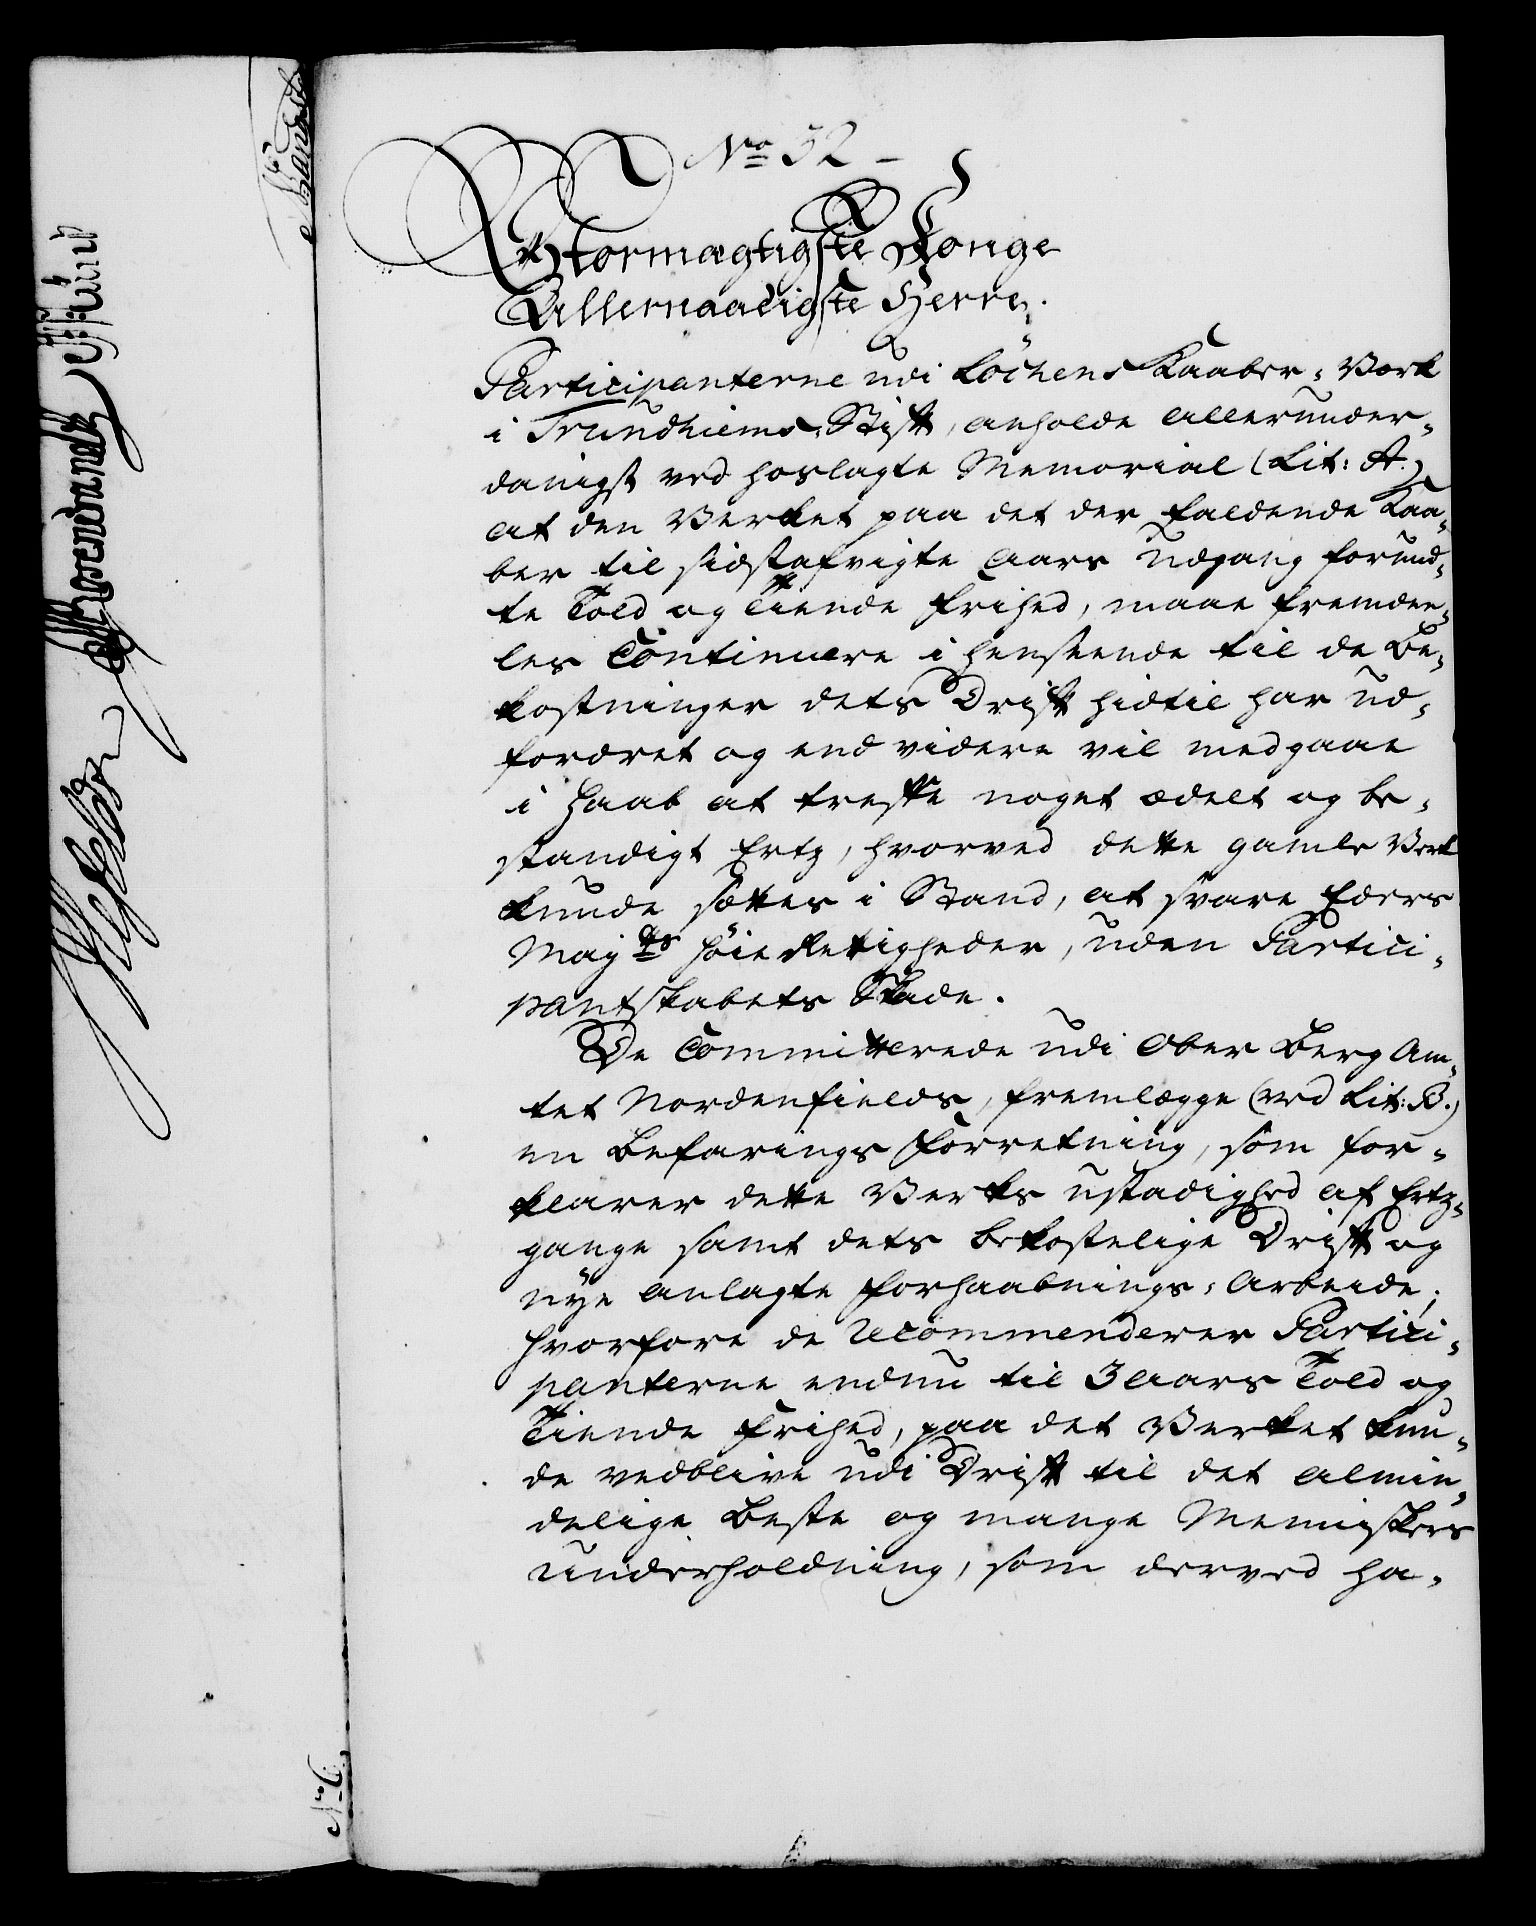 No 32
Stormægtigste Konge
Allernaadigste Herre.
Participanterne udi Löchens Kaaber-Værk
i Trundhiems Stift, anholde allerunder-
danigst ved hoslagte Memorial (Lit: A.)
at den Verket paa det der faldende Kaa-
ber til sidstafvigte Aars Udgang forund-
te Told og Tiende frihed, maae fremdee-
les Continuere i henseende til de Be-
kostninger dets Drift hidtil har ud-
fordret og end videre vil medgaae
i Haab at treffe noget ædelt og be-
standigt Ertz, hvorved dette gamle Verk
kunde sættes i Stand, at svare Eders
Majts höie Rettigheder, uden Partici-
pantskabets Skade.
De Committerede udi Ober Berg Am-
tet Nordenfields, fremlægge (ved Lit: B.)
en Befarings Forretning, som for-
klarer dette Verks ustadighed af Ertz-
gange samt dets bekostelige Drift og
nye anlagte Forhaabnings-Arbeide;
hvorfore de recommenderer Partici-
panterne endnu til 3 Aars Told og
Tiende Frihed, paa det Verket kun-
de vedblive udi Drift til det almin-
delige Beste og mange Menniskers
Underholdning, som derved ha-
No 6